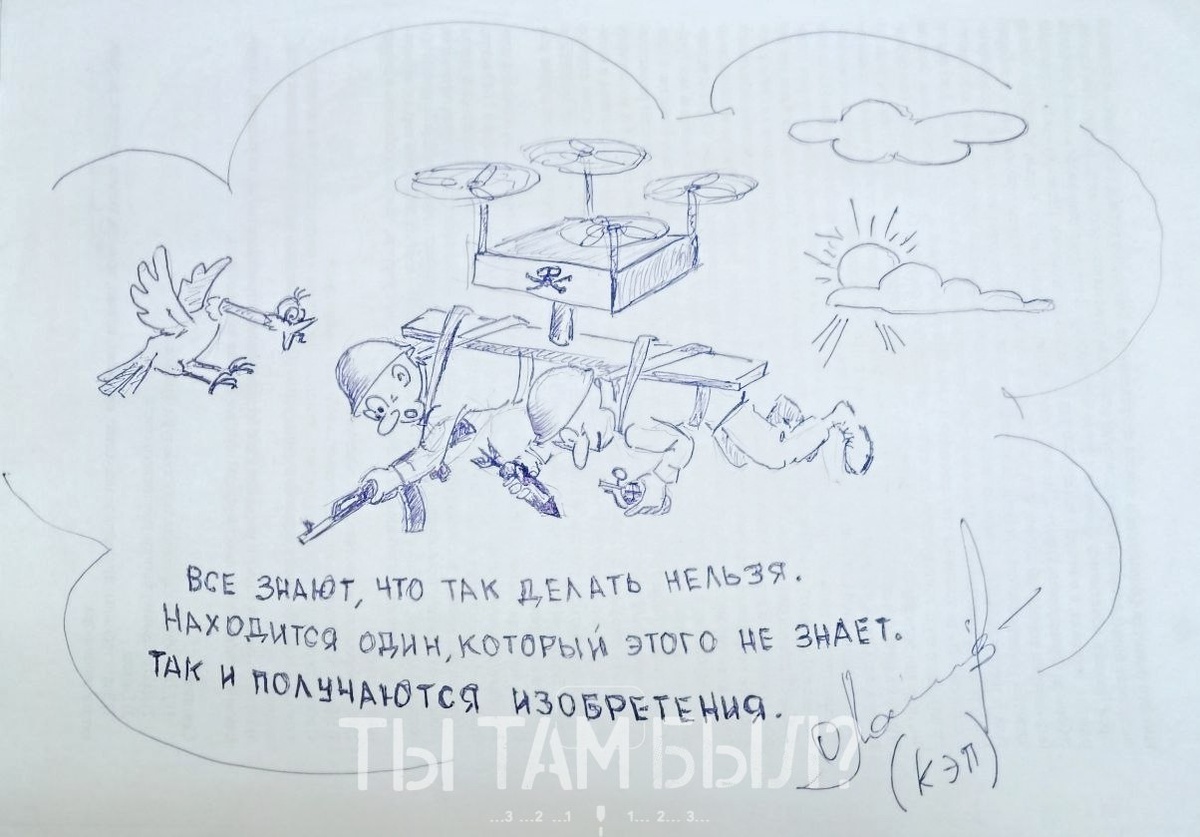 ВСЕ ЗНАЮТ, ЧТО ТАК ДЕЛАТЬ НЕЛЬЗЯ.
НАХОДИТСЯ ОДИН, КОТОРЫЙ ЭТОГО НЕ ЗНАЕТ.
ТАК И ПОЛУЧАЮТСЯ ИЗОБРЕТЕНИЯ.
ТЫ ТАМ БЫЛ?
(КЭП)
...3 ...2 ...1 1... 2... 3...